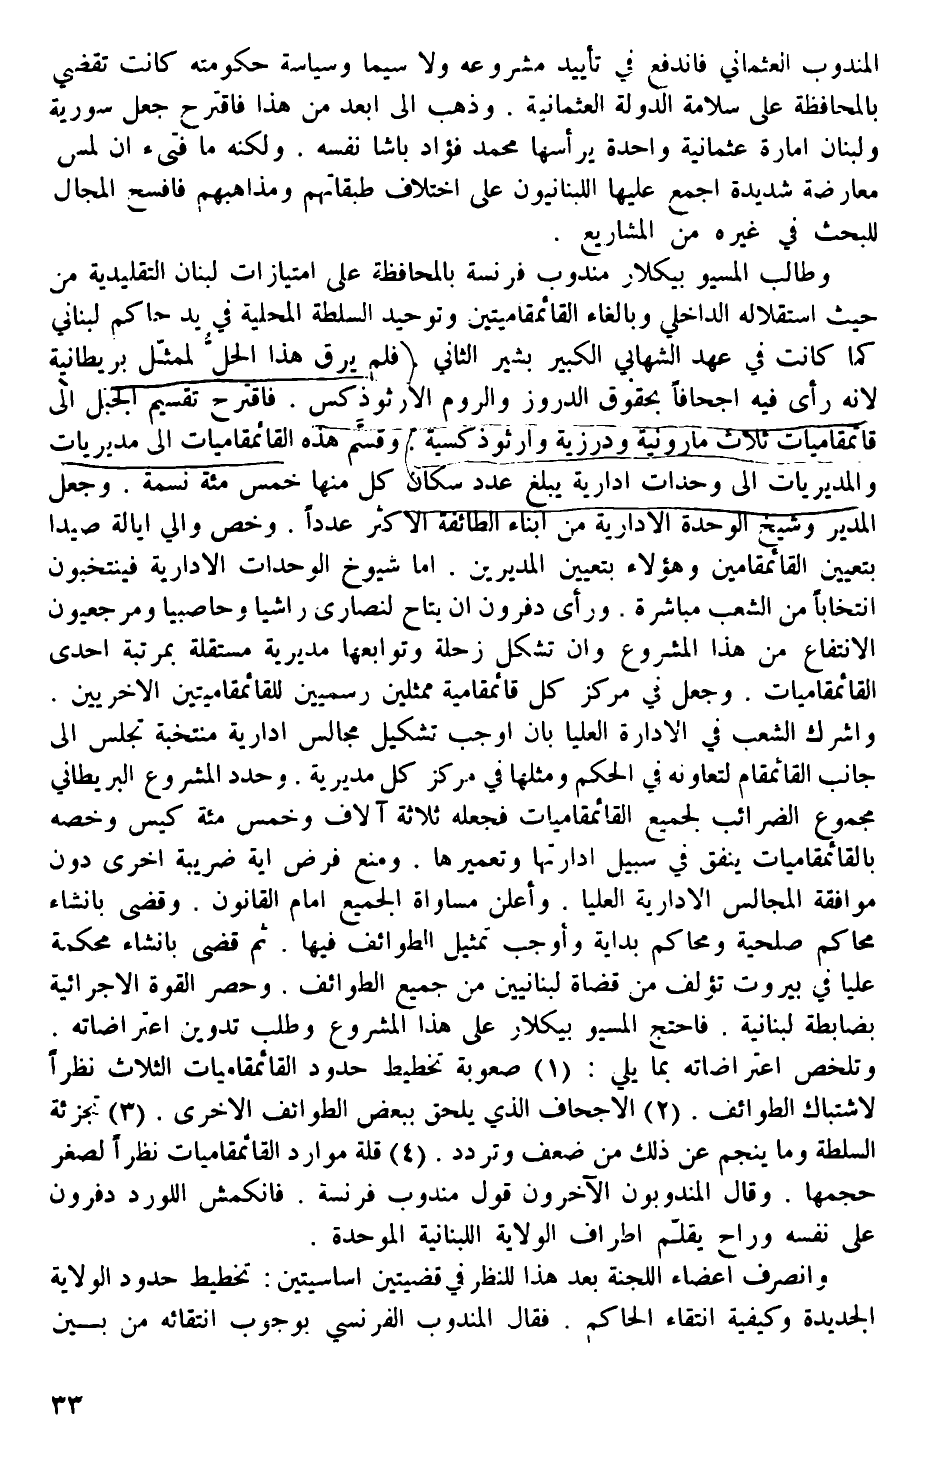 المندوب العثماني فاندفع في تأييد مشروعه ولا سيما وسياسة حكومته كانت تقضي
بالمحافظة على سلامة الدولة العثمانية . وذهب الى ابعد من هذا فاقترح جعل سورية
ولبنان امارة عثمانية واحدة يرأسها محمد فؤاد باشا نفسه . ولكنه ما فتىء ان لمس
معارضة شديدة اجمع عليها اللبنانيون على اختلاف طبقاتهم ومذاهبهم فافسح المجال
للبحث في غيره من المشاريع .
وطالب المسيو بيكلار مندوب فرنسة بالمحافظة على امتيازات لبنان التقليدية من
حيث استقلاله الداخلي وبالغاء القائمقاميتين وتوحيد السلطة المحلية في يد حاكم لبناني
كما كانت في عهد الشهابي الكبير بشير الثاني (فلم يرق هذا الحلّ لممثّل بريطانية
لانه رأى فيه اجحافاً بحقوق الدروز والروم الارثوذكس . فاقترح تقسيم الجبل الى
قائمقاميات ثلاث مارونية ودرزية وارثوذكسية .) وقسَّم هذه القائمقاميات الى مديريات
والمديريات الى وحدات ادارية يبلغ عدد سكان كل منها خمس مئة نسمة . وجعل
المدير وشيخ الوحدة الادارية من ابناء الطائفة الاكثر عدداً . وخص والي ايالة صيدا
بتعيين القائمقامين وهؤلاء بتعيين المديرين . اما شيوخ الوحدات الادارية فينتخبون
انتخاباً من الشعب مباشرة . ورأى دفرون ان يتاح لنصارى راشيا وحاصبيا ومرجعيون
الانتفاع من هذا المشروع وان تشكل زحلة وتوابعها مديرية مستقلة بمرتبة احدى
القائمقاميات . وجعل في مركز كل قائمقامية ممثلين رسميين للقائمقاميتين الاخريين .
واشرك الشعب في الادارة العليا بان اوجب تشكيل مجالس ادارية منتخبة تجلس الى
جانب القائمقام لتعاونه في الحكم ومثلها في مركز كل مديرية . وحدد المشروع البريطاني
مجموع الضرائب لجميع القائمقاميات فجعله ثلاثة آلاف وخمس مئة كيس وخصه
بالقائمقاميات ينفق في سبيل ادارتها وتعميرها . ومنع فرض اية ضريبة اخرى دون
موافقة المجالس الادارية العليا . وأعلن مساواة الجميع امام القانون . وقضى بانشاء
محاكم صلحية ومحاكم بداية وأوجب تمثيل الطوائف فيها . ثم قضى بانشاء محكمة
عليا في بيروت تؤلف من قضاة لبنانيين من جميع الطوائف . وحصر القوة الاجرائية
بضابطة لبنانية . فاحتج المسيو بيكلار على هذا المشروع وطلب تدوين اعتراضاته .
وتلخص اعتراضاته بما يلي : (١) صعوبة تخطيط حدود القائمقاميات الثلاث نظراً
لاشتباك الطوائف . (٢) الاجحاف الذي يلحق ببعض الطوائف الاخرى . (٣) تجزئة
السلطة وما ينجم عن ذلك من ضعف وتردد . (٤) قلة موارد القائمقاميات نظراً لصغر
حجمها . وقال المندوبون الآخرون قول مندوب فرنسة . فانكمش اللورد دفرون
على نفسه وراح يقلّم اطراف الولاية اللبنانية الموحدة .
وانصرف اعضاء اللجنة بعد هذا للنظر في قضيتين اساسيتين : تخطيط حدود الولاية
الجديدة وكيفية انتقاء الحاكم . فقال المندوب الفرنسي بوجوب انتقائه من بــين
٣٣